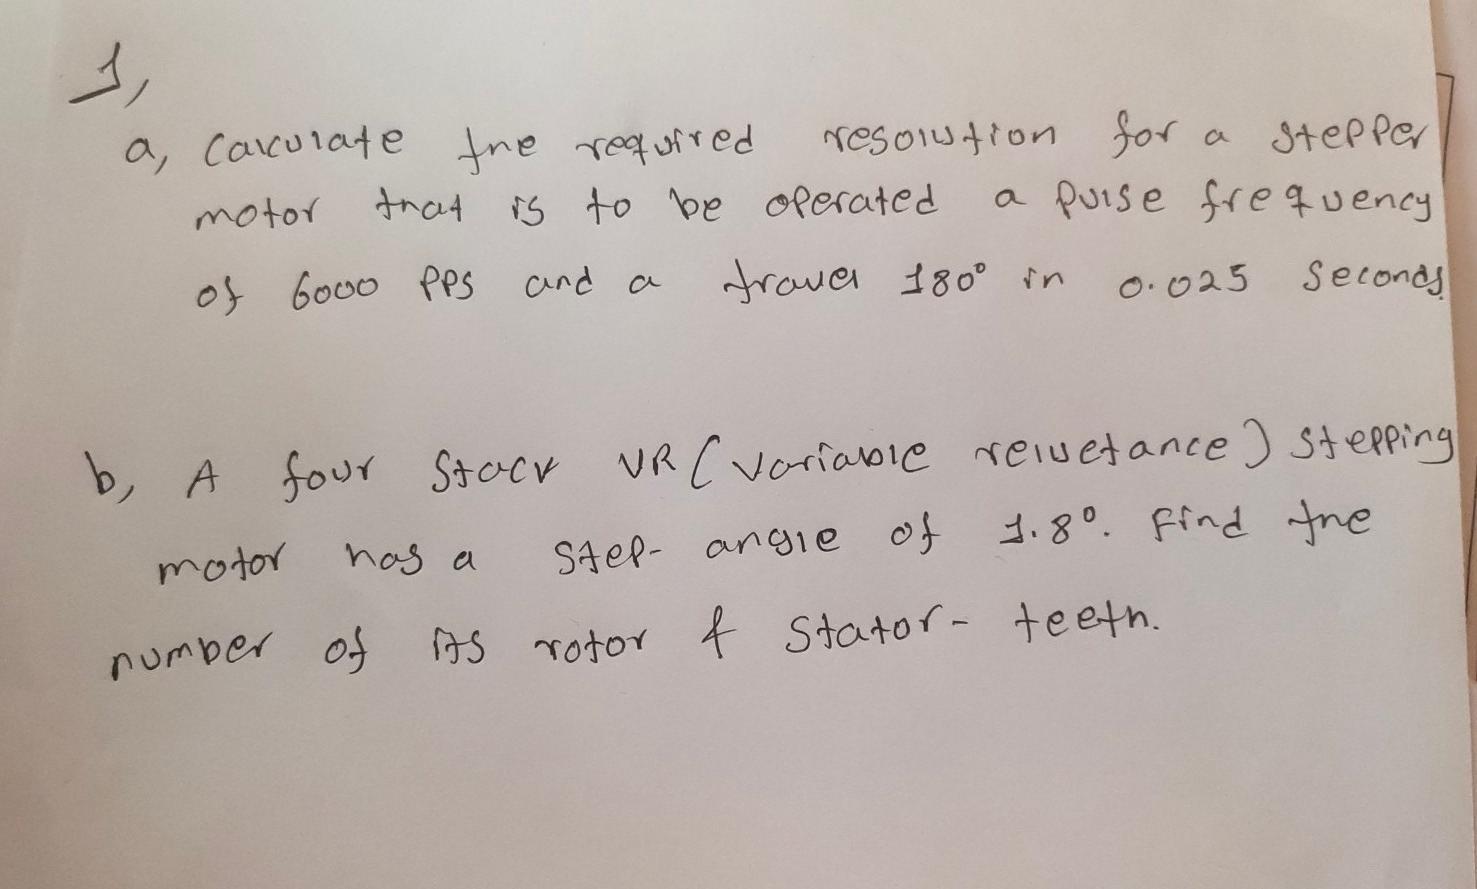 1,
a, Calculate the required resolution for a stepper
motor that is to be operated a pulse frequency
of 6000 PPS and a travel 180° in 0.025 Seconds.
b, A four Stack VR (variable reluctance) stepping
motor has a step-angle of 1.8°. Find the
number of its rotor & stator-teeth.